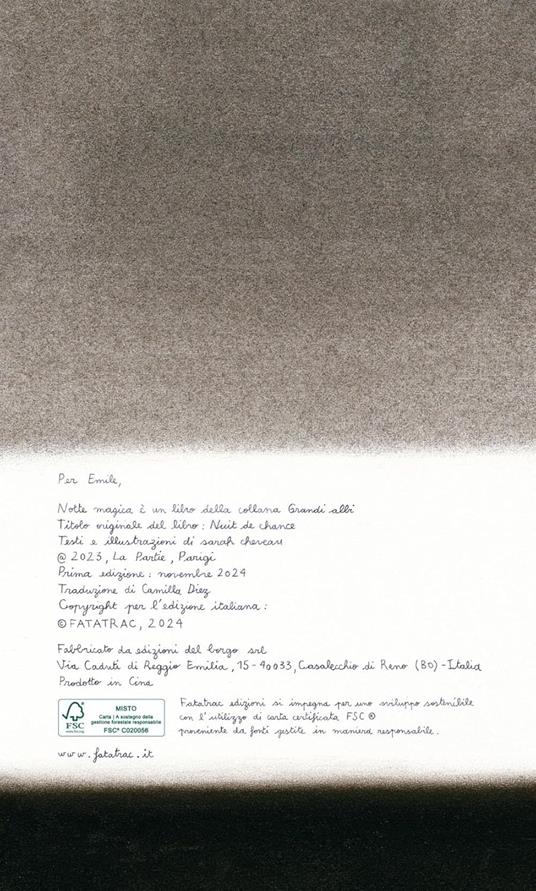 Per Emile,
Notte magica è un libro della collana Grandi albi
Titolo originale del libro: Nuit de chance
Testi e illustrazioni di sarah cheveau
@ 2023, La Partie, Parigi
Prima edizione: novembre 2024
Traduzione di Camilla Diez
Copyright per l'edizione italiana:
© FATATRAC, 2024
Fabbricato da edizioni del borgo srl
Via Caduti di Reggio Emilia, 15 - 40033, Casalecchio di Reno (BO) - Italia
Prodotto in Cina
FSC
www.fsc.org
MISTO
Carta | A sostegno della
gestione forestale responsabile
FSC® C020056
Fatatrac edizioni si impegna per uno sviluppo sostenibile
con l'utilizzo di carta certificata FSC ®
proveniente da fonti gestite in maniera responsabile.
www.fatatrac.it